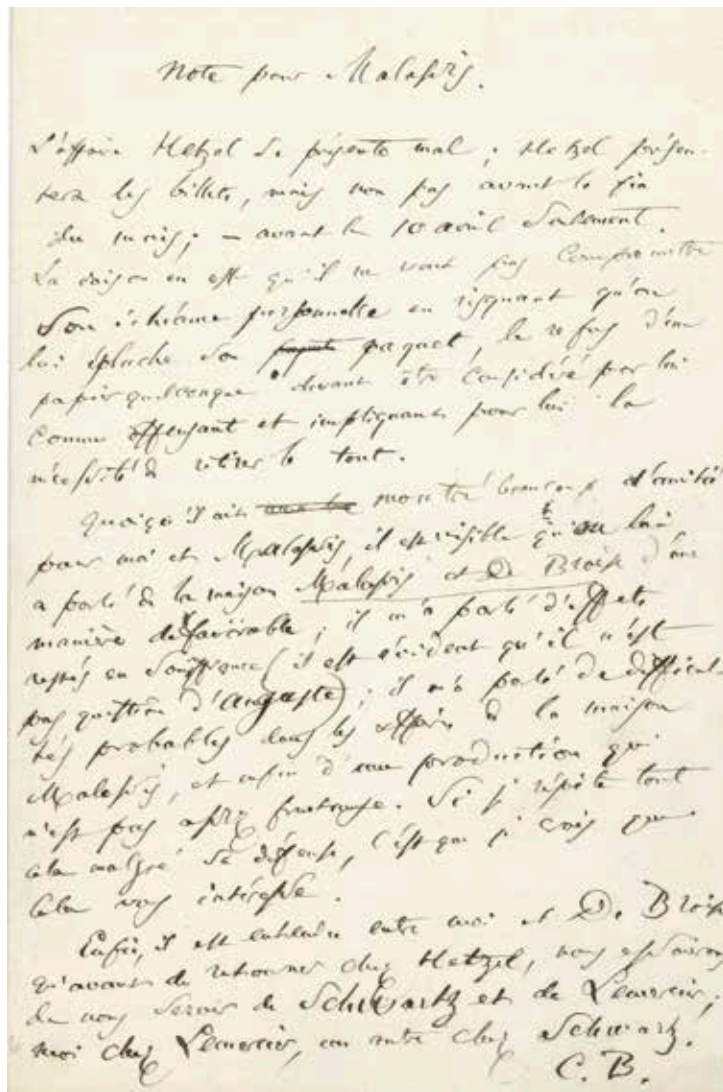 Note pour Malassis.
L'affaire Hetzel se présente mal ; Hetzel présen-
tera les billets, mais non pas avant la fin
du mois ; — avant le 10 août seulement.
La raison en est qu'il ne veut pas compromettre
son échéance personnelle en risquant qu'on
lui épluche son paquet, le refus d'un
papier quelconque devant être considéré par lui
comme offensant et impliquant pour lui la
nécessité de retirer le tout.
Quoiqu'il ait montré beaucoup d'amitié
pour moi et Malassis, il est visible qu'on lui
a parlé de la maison Malassis et De Broise d'une
manière défavorable ; il m'a parlé d'effets
restés en souffrance (il est évident qu'il n'est
pas question d'Auguste) ; il m'a parlé de difficul-
tés probables dans les affaires de la maison
Malassis, et enfin d'une production qui
n'est pas assez fructueuse. Si je répète tout
cela malgré sa défense, c'est que je crois que
cela vous intéresse.
Enfin, il est entendu entre moi et De Broise
qu'avant de retourner chez Hetzel, nous essaierons
de nous servir de Schwartz et de Lemercier ;
moi chez Lemercier, un autre chez Schwartz.
C. B.